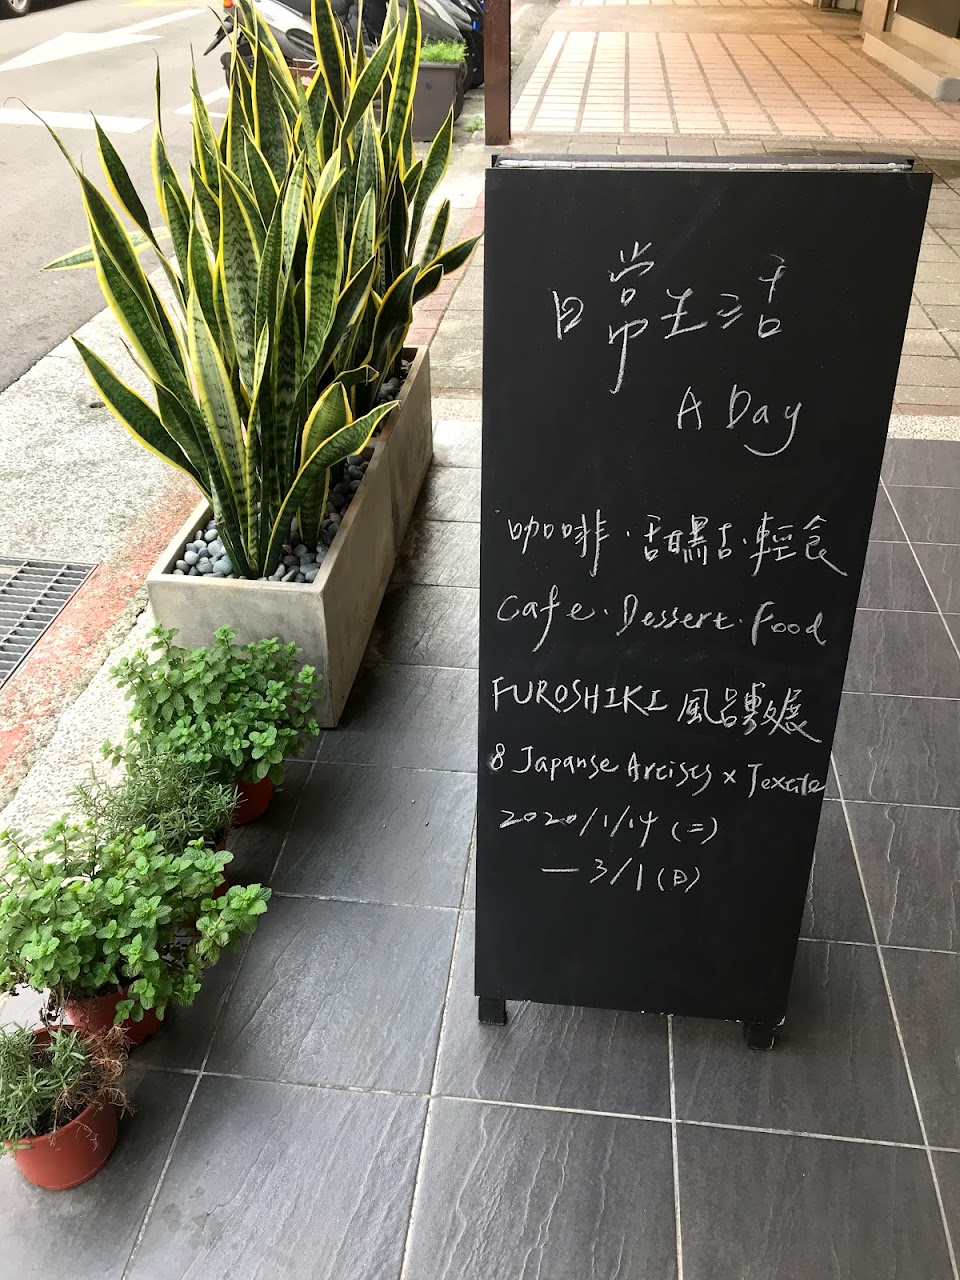 日常生活
A Day
咖啡·甜點·輕食
Cafe·Dessert·Food
FUROSHIKI 風呂敷展
8 Japanse Artists x Textile
2020/1/14 (二)
— 3/1 (日)